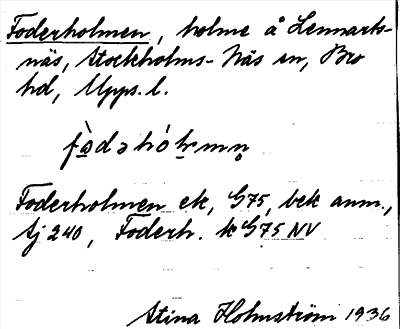 Foderholmen, holme å Lennarts-
näs, Stockholms-Näs sn, Bro
hd, Upps. l.
fàdəhólmn̥
Foderholmen ek, G75, bek anm.,
Sj 240, Foderh. k G75 NV
Stina Holmström 1936